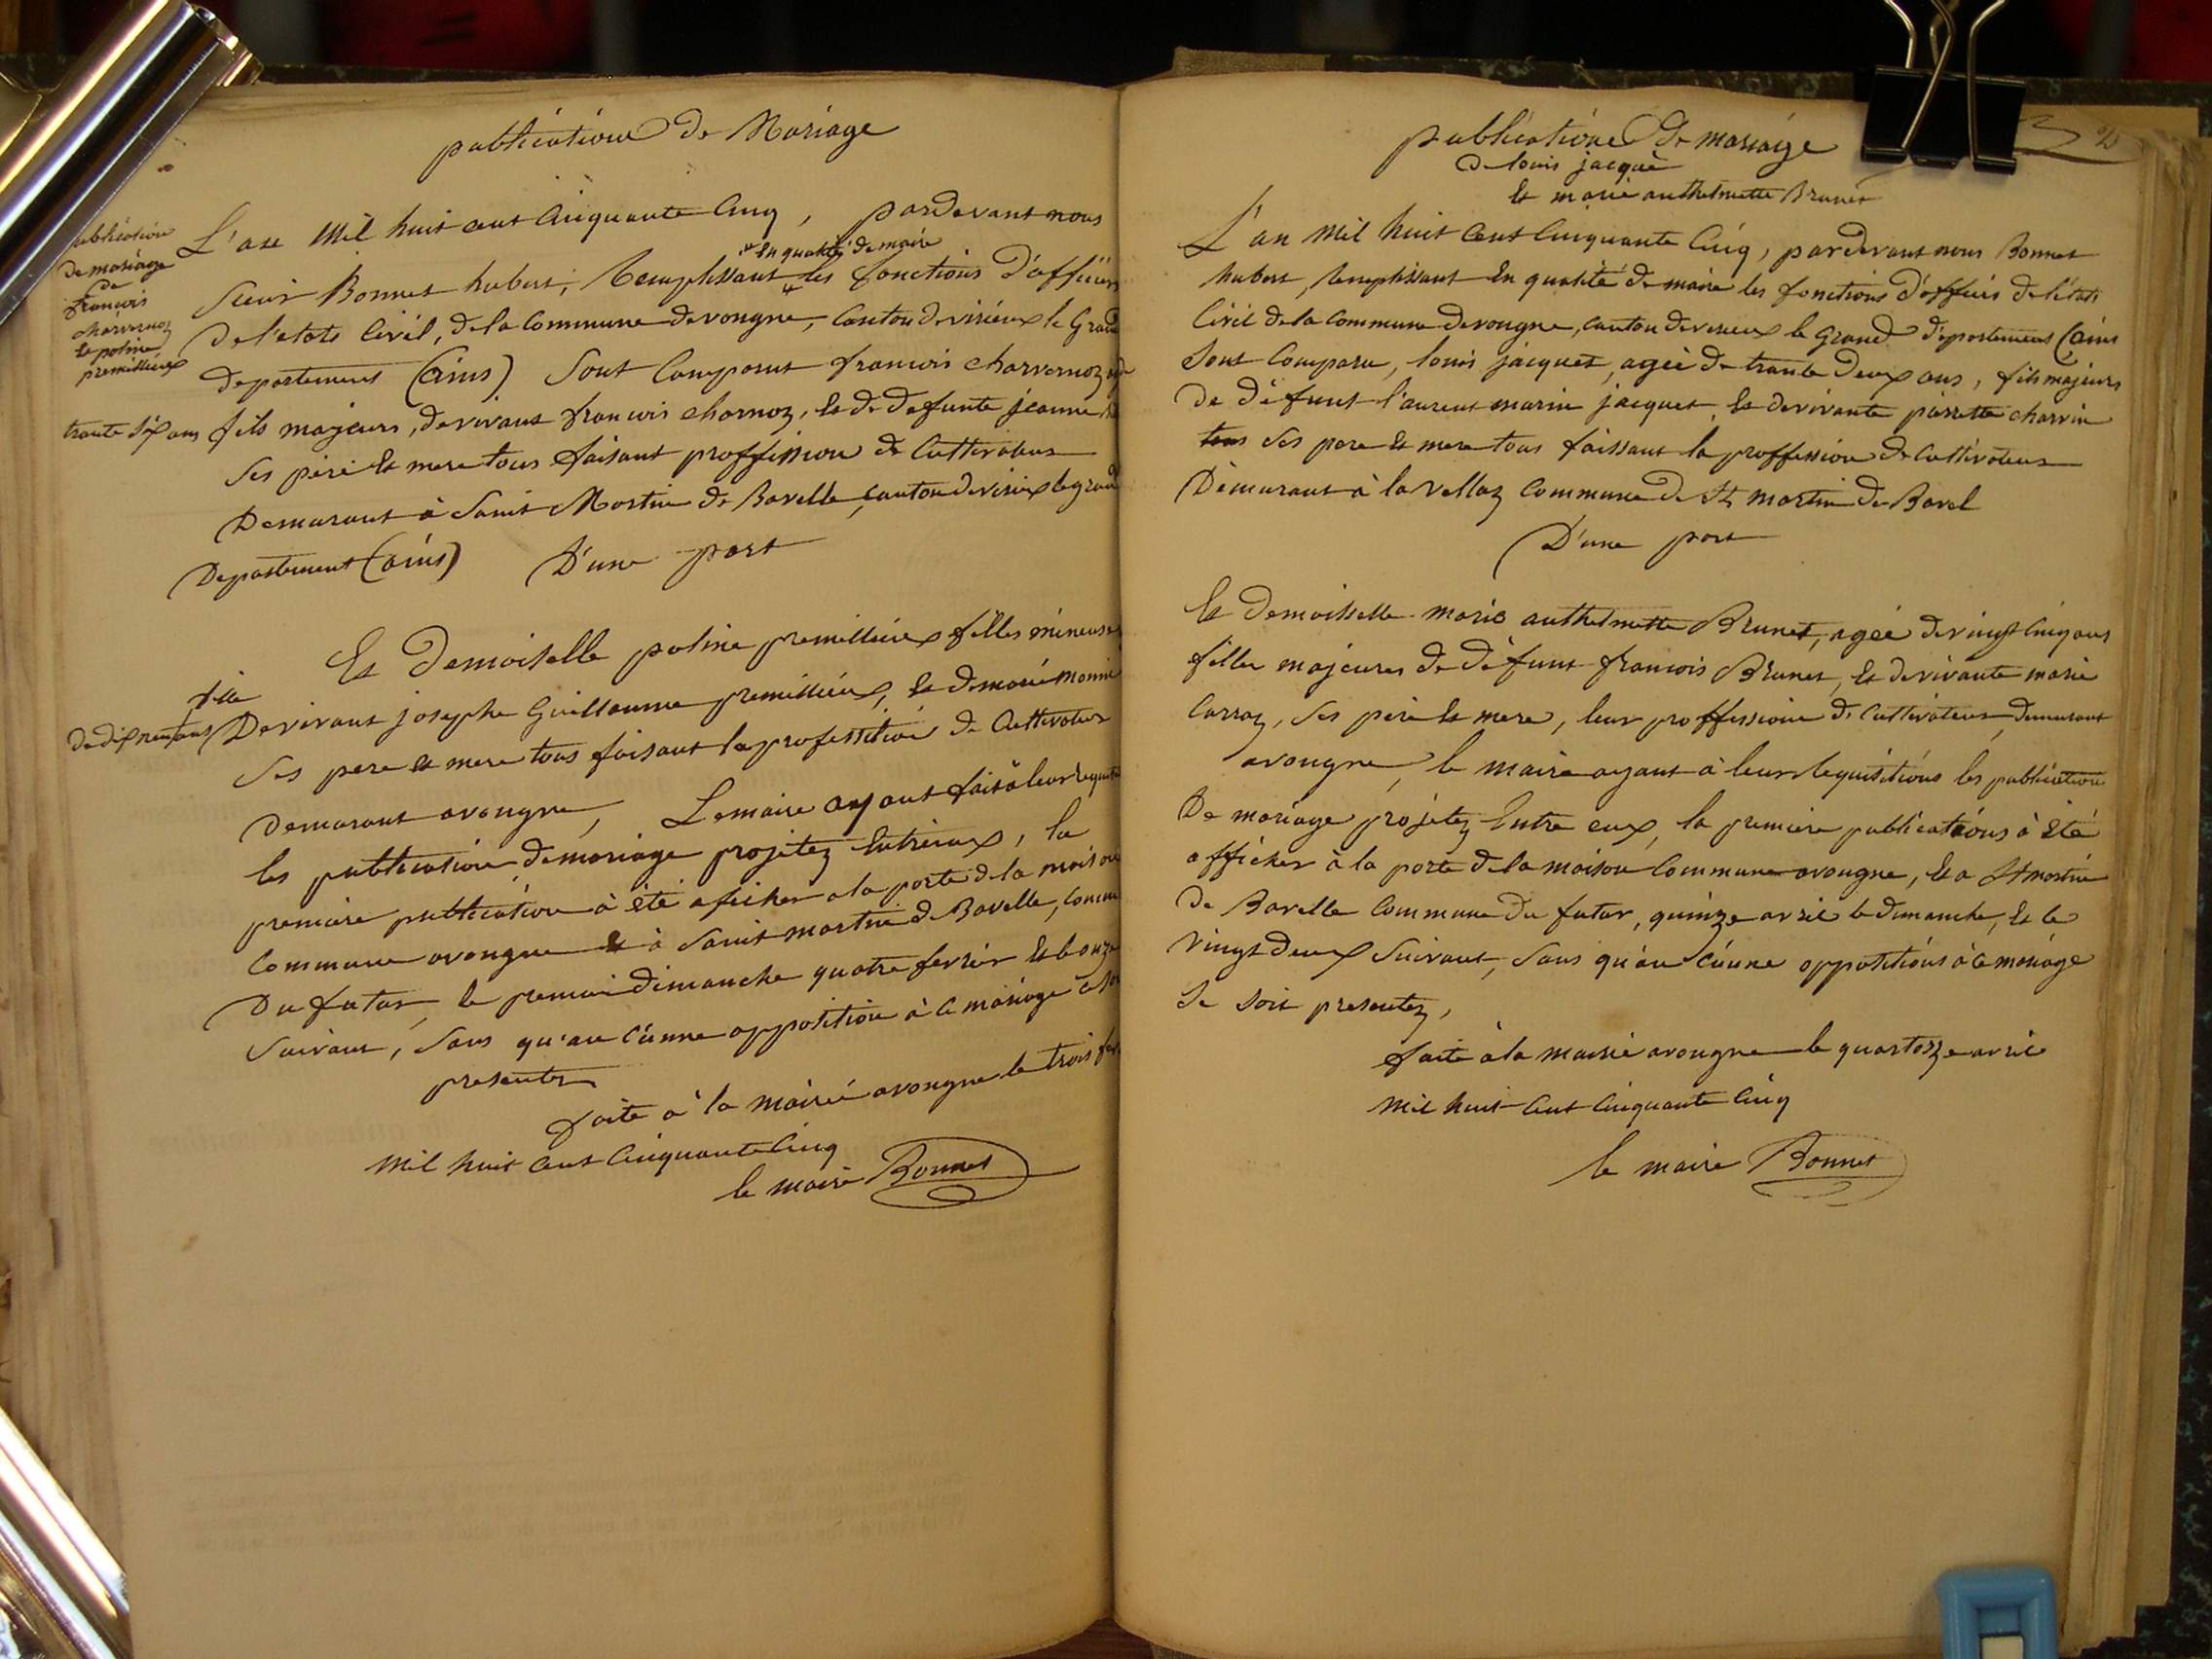 publication de Mariage
publication
de mariage
de
francois
charvernoz
et poline
premillieux
L'an Mil huit cent Cinquante Cinq, pardevant nous
en qualité de maire
Sieur Bonnet hubert, Remplissant les fonctions d'officier
de l'etats Civil, de la Commune devongne, Canton de virieux le Grand
departement (ains) Sont Comparut francois charvernoz
trante six ans fils majeurs, devivant francois charnoz, et de defunte jeanne
Ses père et mere tous faisant proffission de Cultivateur
Demurant à Saint Martin de Bavelle, canton de virieux le grand
Departement (ains) D'une part
Et Demoiselle poline premillieux filles mineuse
fille
de dix neuf ans Devivant josephe Guillaume premillieux, et de marie
Ses pere et mere tous faisant la professition de Cultivateur
Demurant avongne, Le maire ayant fait à leur
les publication de mariage projetez Entreeux, la
premiere publication à été aficher a la porte de la maison
Commune avongne et à Saint martin de Bavelle, Commune
Du futur, le premier dimanche quatre fevrier Et le onze
Suivant, Sans qu'au Cunne opposition à ce mariage
presentez
faite à la mairie avongne le trois
Mil huit Cent Cinquante Cinq
le maire Bonnet
publication de mariage
De louis jacque
Et marie anthelmette Brunet
L'an Mil huit Cent Cinquante Cinq, pardevant nous Bonnet
hubert, Remplissant En qualité de maire les fonctions d'officier de l'etats
Civil de la Commune devongne, canton de virieux le Grand departement (ains
Sont Comparu, louis jacquet, ageé de trante Deux ans, fils majeurs
De defunt l'aurent marin jacquet, Et devivante pierrette charvin
tous Ses pere Et mere tous faissant la proffession de Cultivateur
Demurant à lavellaz Commune de St martin de Bavel
D'une part
Et Demoisselle marie anthelmette Brunet, ageé de vingt Cinq ans
filles majeures de defunt francois Brunet, Et devivante marie
Carraz, Ses père Et mere, leur proffession de Cultivateur, demurant
avongne, le maire ayant à leurs Requisitions les publication
De mariage projetez Entre eux, la premiere publications à été
afficher à la porte de la maison Commune avongne, Et a St martin
De Bavelle Commune du futur, quinze avril le dimanche, Et le
Vingt Deux Suivant, Sans qu'au Cunne oppositions à ce mariage
Se soit presentez,
faite à la mairie avongne le quartozze avril
Mil huit Cent Cinquante Cinq
le maire Bonnet